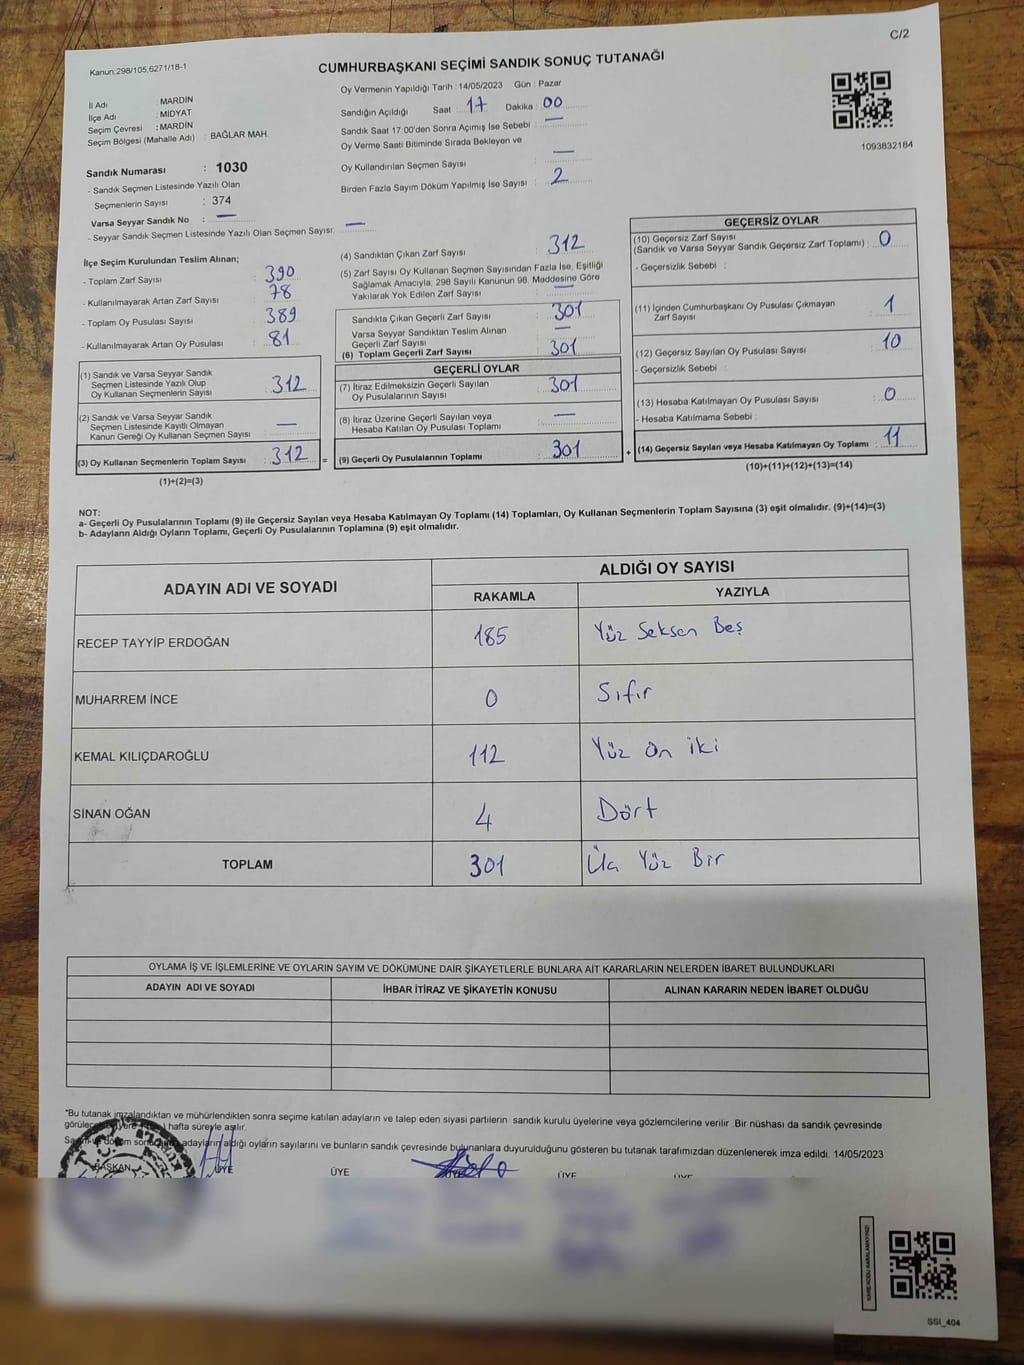 C/2
Kanun:298/105,6271/18-1
CUMHURBAŞKANI SEÇİMİ SANDIK SONUÇ TUTANAĞI
İl Adı : MARDİN
İlçe Adı : MİDYAT
Seçim Çevresi : MARDİN
Seçim Bölgesi (Mahalle Adı) : BAĞLAR MAH.
Sandık Numarası : 1030
- Sandık Seçmen Listesinde Yazılı Olan
Seçmenlerin Sayısı : 374
Varsa Seyyar Sandık No : —
- Seyyar Sandık Seçmen Listesinde Yazılı Olan Seçmen Sayısı: —
Oy Vermenin Yapıldığı Tarih : 14/05/2023 Gün : Pazar
Sandığın Açıldığı Saat : 17 Dakika : 00
Sandık Saat 17:00'den Sonra Açımış İse Sebebi : —
Oy Verme Saati Bitiminde Sırada Bekleyen ve
Oy Kullandırılan Seçmen Sayısı : —
Birden Fazla Sayım Döküm Yapılmış İse Sayısı : 2
1093832184
İlçe Seçim Kurulundan Teslim Alınan;
- Toplam Zarf Sayısı : 390
- Kullanılmayarak Artan Zarf Sayısı : 78
- Toplam Oy Pusulası Sayısı : 389
- Kullanılmayarak Artan Oy Pusulası : 81
(1) Sandık ve Varsa Seyyar Sandık
Seçmen Listesinde Yazılı Olup
Oy Kullanan Seçmenlerin Sayısı : 312
(2) Sandık ve Varsa Seyyar Sandık
Seçmen Listesinde Kayıtlı Olmayan
Kanun Gereği Oy Kullanan Seçmen Sayısı : —
(3) Oy Kullanan Seçmenlerin Toplam Sayısı : 312 =
(1)+(2)=(3)
(4) Sandıktan Çıkan Zarf Sayısı : 312
(5) Zarf Sayısı Oy Kullanan Seçmen Sayısından Fazla İse, Eşitliği
Sağlamak Amacıyla, 298 Sayılı Kanunun 98. Maddesine Göre
Yakılarak Yok Edilen Zarf Sayısı : —
Sandıkta Çıkan Geçerli Zarf Sayısı : 301
Varsa Seyyar Sandıktan Teslim Alınan
Geçerli Zarf Sayısı : —
(6) Toplam Geçerli Zarf Sayısı : 301
GEÇERLİ OYLAR
(7) İtiraz Edilmeksizin Geçerli Sayılan
Oy Pusulalarının Sayısı : 301
(8) İtiraz Üzerine Geçerli Sayılan veya
Hesaba Katılan Oy Pusulası Toplamı : —
(9) Geçerli Oy Pusulalarının Toplamı : 301 +
GEÇERSİZ OYLAR
(10) Geçersiz Zarf Sayısı
(Sandık ve Varsa Seyyar Sandık Geçersiz Zarf Toplamı) : 0
- Geçersizlik Sebebi :
(11) İçinden Cumhurbaşkanı Oy Pusulası Çıkmayan
Zarf Sayısı : 1
(12) Geçersiz Sayılan Oy Pusulası Sayısı : 10
- Geçersizlik Sebebi :
(13) Hesaba Katılmayan Oy Pusulası Sayısı : 0
- Hesaba Katılmama Sebebi :
(14) Geçersiz Sayılan veya Hesaba Katılmayan Oy Toplamı : 11
(10)+(11)+(12)+(13)=(14)
NOT:
a- Geçerli Oy Pusulalarının Toplamı (9) ile Geçersiz Sayılan veya Hesaba Katılmayan Oy Toplamı (14) Toplamları, Oy Kullanan Seçmenlerin Toplam Sayısına (3) eşit olmalıdır. (9)+(14)=(3)
b- Adayların Aldığı Oyların Toplamı, Geçerli Oy Pusulalarının Toplamına (9) eşit olmalıdır.
ADAYIN ADI VE SOYADI
ALDIĞI OY SAYISI
RAKAMLA YAZIYLA
RECEP TAYYİP ERDOĞAN 185 Yüz Seksen Beş
MUHARREM İNCE 0 Sıfır
KEMAL KILIÇDAROĞLU 112 Yüz On iki
SİNAN OĞAN 4 Dört
TOPLAM 301 Üç Yüz Bir
OYLAMA İŞ VE İŞLEMLERİNE VE OYLARIN SAYIM VE DÖKÜMÜNE DAİR ŞİKAYETLERLE BUNLARA AİT KARARLARIN NELERDEN İBARET BULUNDUKLARI
ADAYIN ADI VE SOYADI İHBAR İTİRAZ VE ŞİKAYETİN KONUSU ALINAN KARARIN NEDEN İBARET OLDUĞU
*Bu tutanak imzalandıktan ve mühürlendikten sonra seçime katılan adayların ve talep eden siyasi partilerin sandık kurulu üyelerine veya gözlemcilerine verilir .Bir nüshası da sandık çevresinde
hafta süreyle asılır.
adayların aldığı oyların sayılarını ve bunların sandık çevresinde bulunanlara duyurulduğunu gösteren bu tutanak tarafımızdan düzenlenerek imza edildi. 14/05/2023
BAŞKAN ÜYE ÜYE ÜYE ÜYE ÜYE
SSI_404